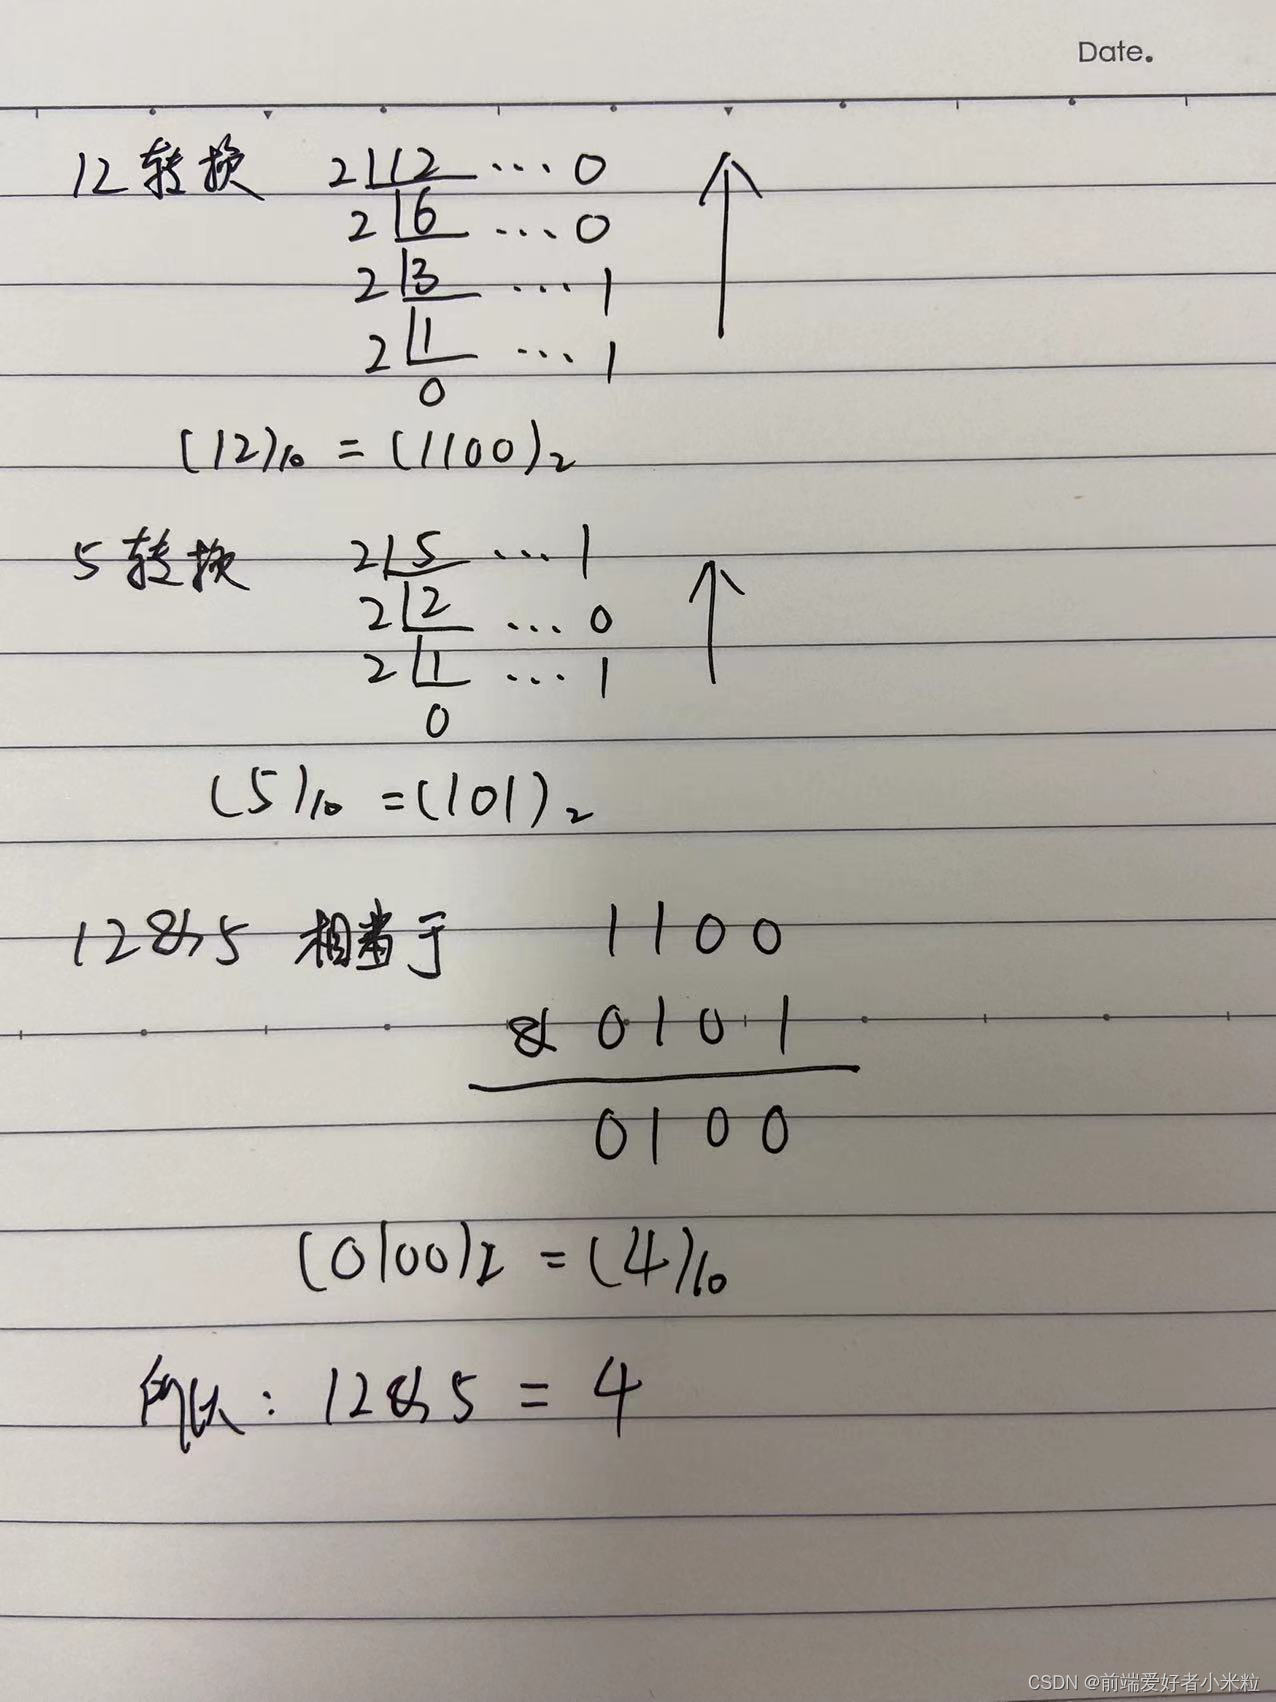 Date.
12转换 2 12 ... 0
2 6 ... 0
2 3 ... 1
2 1 ... 1
0
(12)10 = (1100)2
5转换 2 5 ... 1
2 2 ... 0
2 1 ... 1
0
(5)10 = (101)2
12&5 相当于 1100
& 0101
0100
(0100)2 = (4)10
所以: 12&5 = 4
CSDN @前端爱好者小米粒